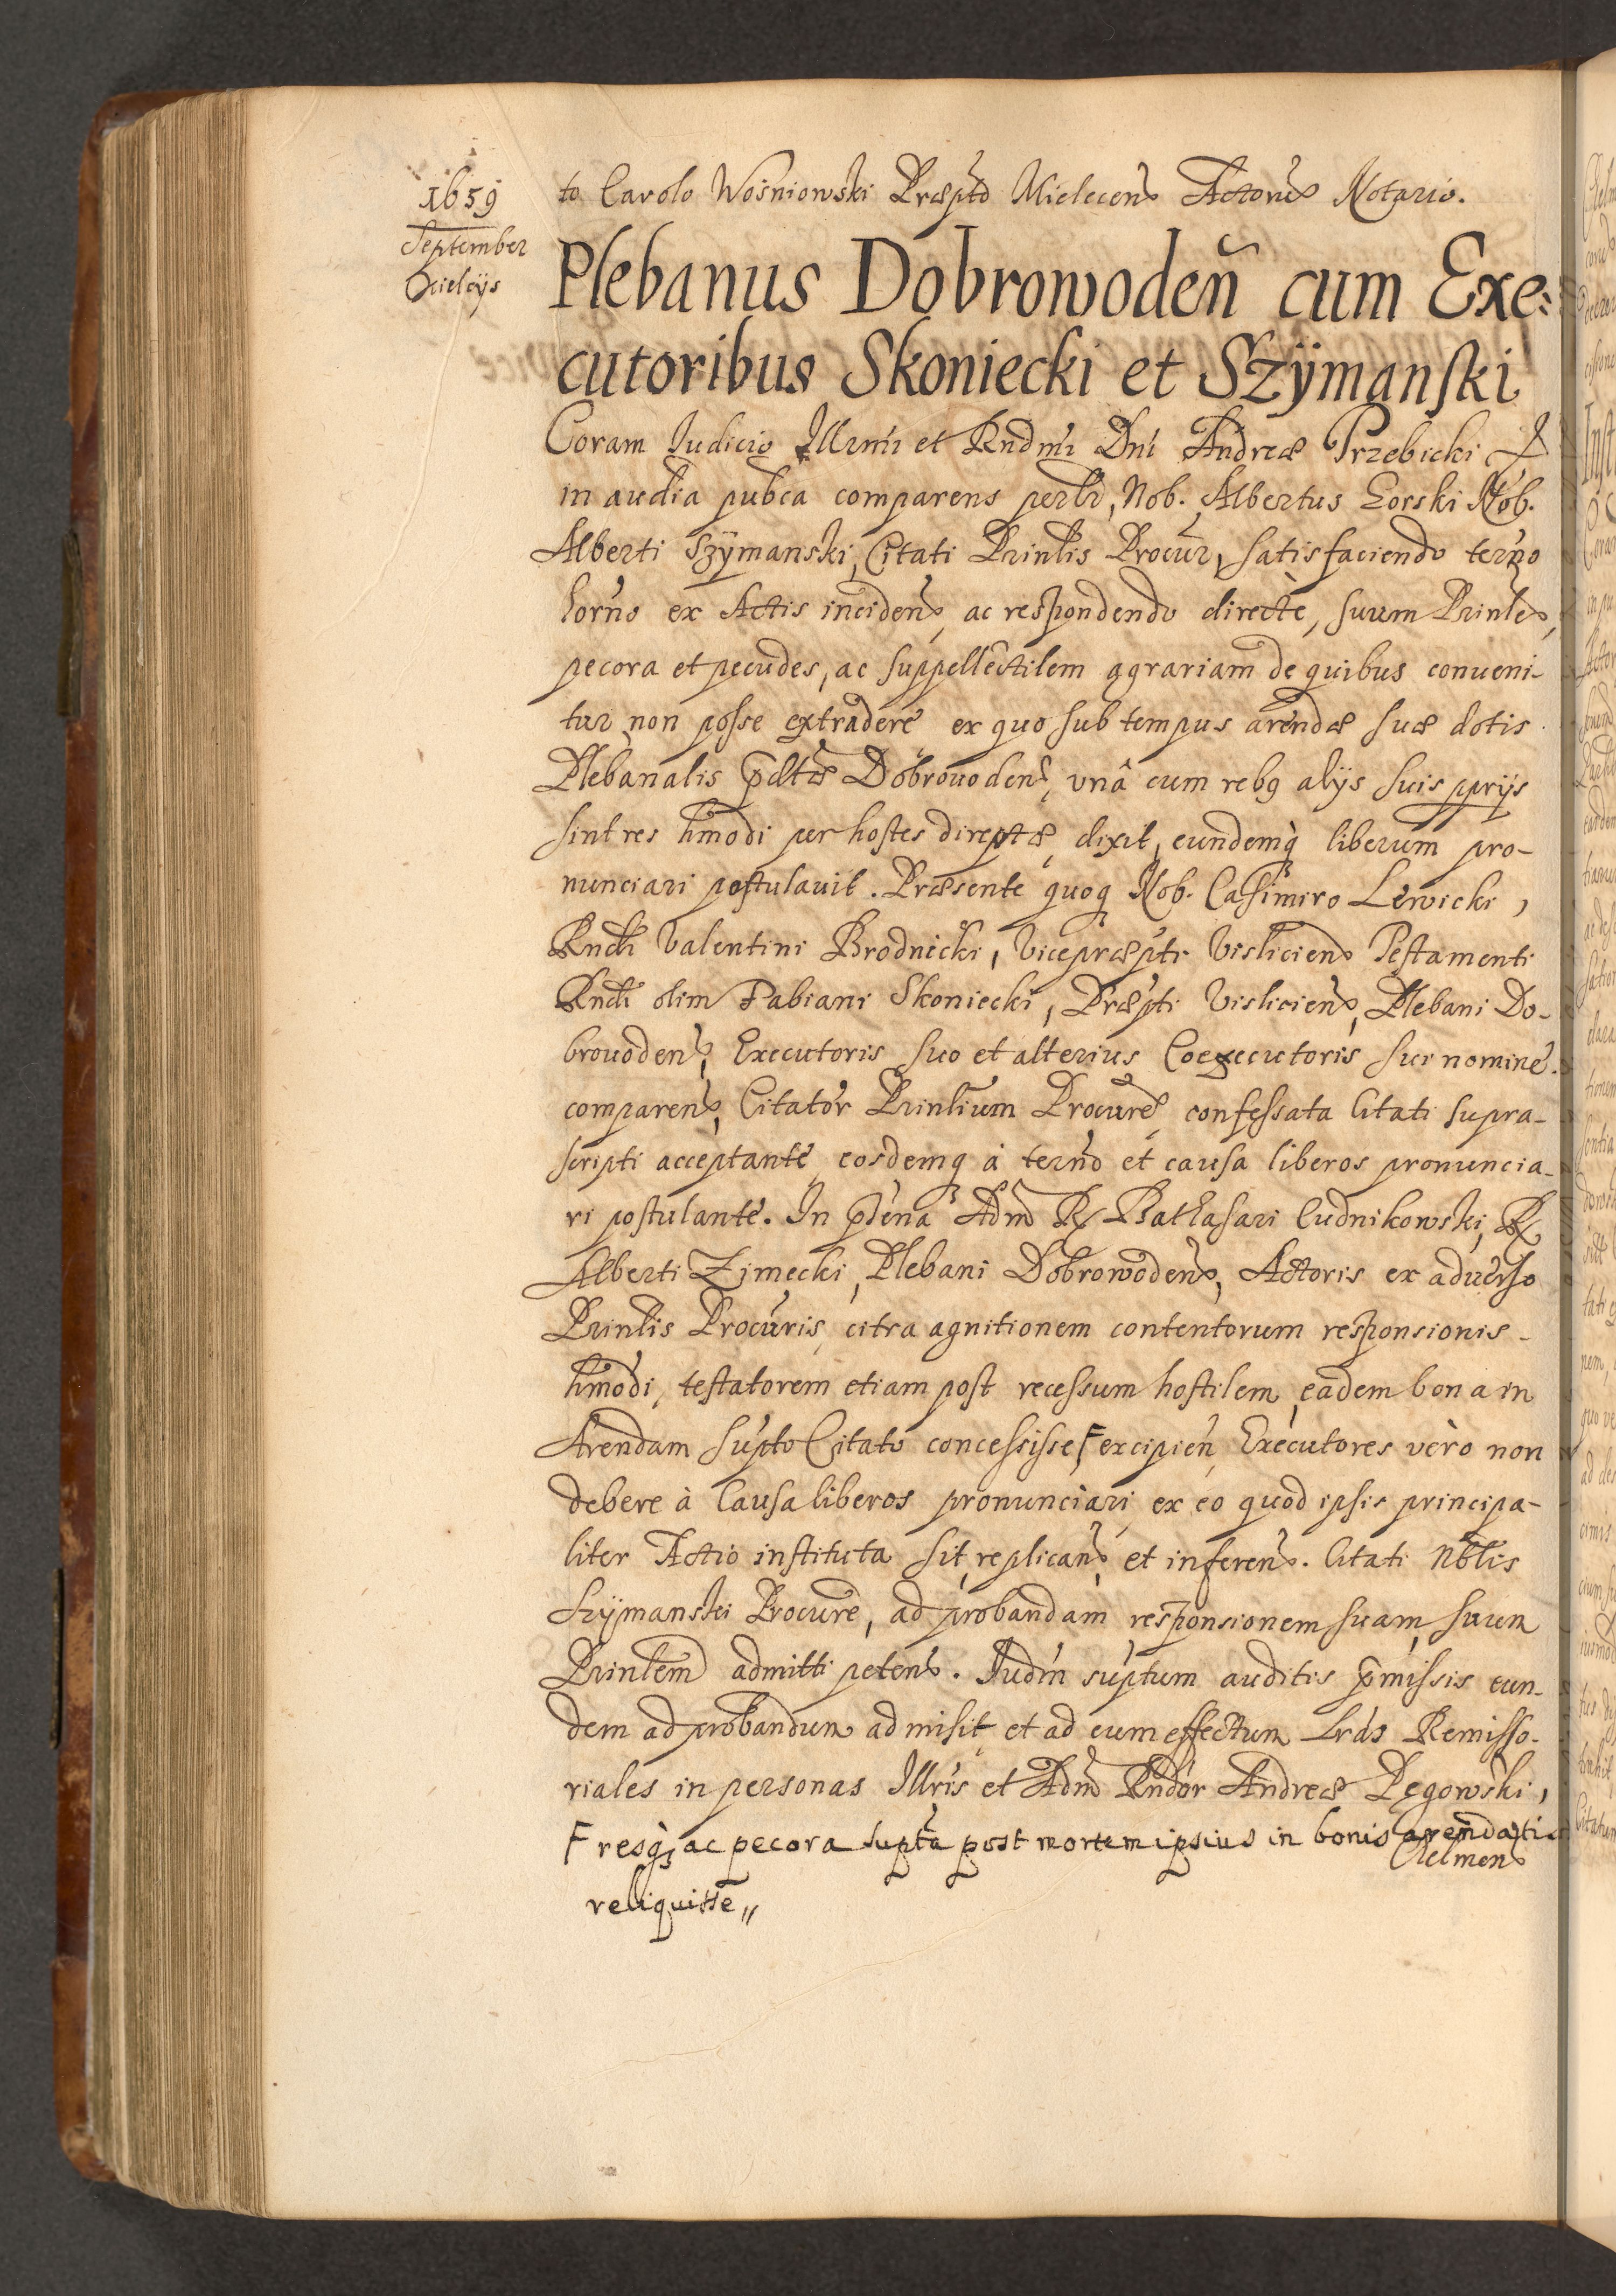 1659
September
Kielcijs
to Carolo Wośniowski Præpto Mielecens Actorū Notario.
Plebanus Dobrowodeñ cum Exe:
cutoribus Skoniecki et Szÿmanski
Coram Iudicio Illrmi et Rndmi Dni Andreæ Trzebicki &
in audia pubca comparens perlr, Nob. Albertus Gorski Nob.
Alberti Szÿmanski, Citati Prinlis Procur, satisfaciendo terno
horno ex Actis inciden, ac respondendo directè, suum Prinle,
pecora et pecudes, ac suppellectilem agrariam de quibus conueni-
tur non posse extradere ex quo sub tempus arendæ suæ dotis
Plebanalis pdtæ Dobrouodens, vnâ cum rebq alijs suis pprijs
sint res hmodi per hostes direptæ, dixit, eundemq liberum pro-
nunciari postulauit. Præsente quoq Nob. Casimiro Lewicki,
Rndi Valentini Brodnicki, Vicepræpti Vislicien Testamenti
Rndi olim Fabiani Skoniecki, Præpti Vislicien, Plebani Do-
brouodens, Executoris suo et alterius Coexecutoris sui nomine.
comparens, Citator Prinlium Procure, confessata Citati supra-
scripti acceptante eosdemq à terno et causa liberos pronuncia-
ri postulante. In pdena Adm R Balthasari Cudnikowski, R
Alberti Zimecki, Plebani Dobrowodens, Actoris ex aduerso
Prinlis Procuris, citra agnitionem contentorum responsionis
hmodi, testatorem etiam post recessum hostilem, eadem bona in
Arendam supto Citato concessisse, F excipien, Executores vèro non
debere à Causa liberos pronunciari ex eo quod ipsis principa-
liter Actio instituta sit, replicans, et inferens. Citati Nblis
Szÿmanski Procure, ad probandam responsionem suam, suum
Prinlem admitti petens. Iudm suptum auditis pmissis eun-
dem ad probandum admisit et ad eum effectum Lras Remisso-
riales in personas Illris et Adm Rndor Andreæ Pęgowski,
F resq ac pecora supta post mortem ipsius in bonis arendatis
reliquisse,,
Chelmens